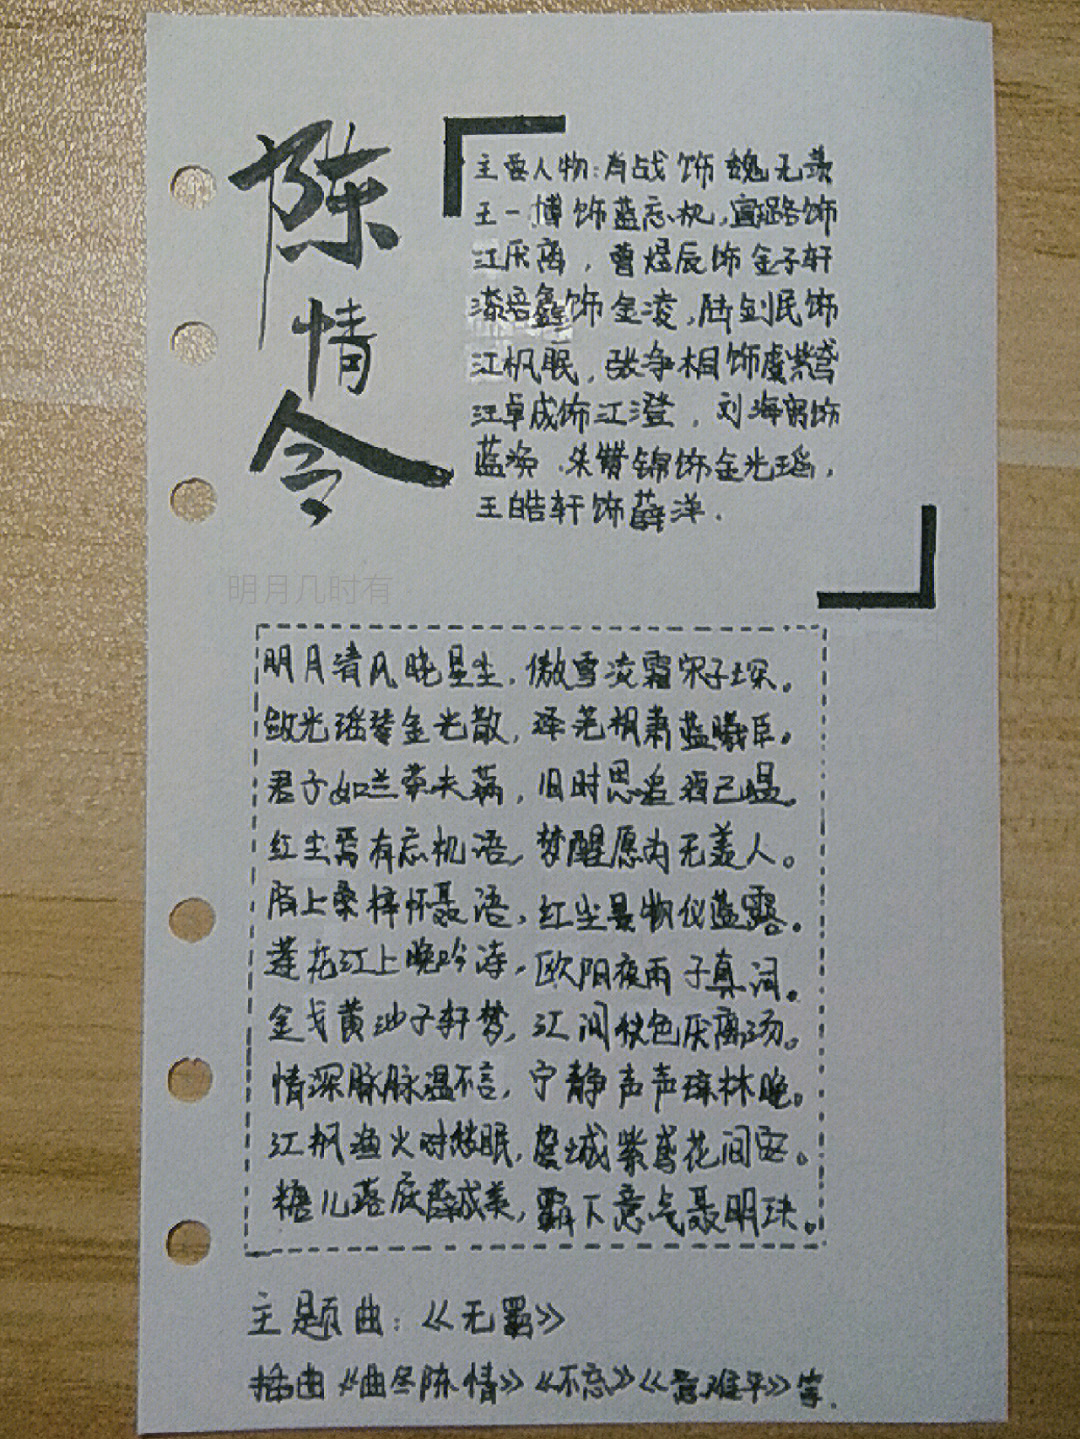 陈情令
主要人物:肖战饰魏无羡
王一博饰蓝忘机,宣璐饰
江厌离,曹煜辰饰金子轩
漆培鑫饰金凌,陆剑民饰
江枫眠,张争相饰虞紫鸢
汪卓成饰江澄,刘海宽饰
蓝涣,朱赞锦饰金光瑶,
王皓轩饰薛洋.
明月几时有
明月清风晓星尘,傲雪凌霜宋子琛。
敛光瑶琴金光散,泽芜相肃蓝曦臣。
君子如兰蒙夫藕,旧时思追酒已温。
红尘焉有忘机语,梦醒愿为无羡人。
陌上桑梓怀聂语,红尘景物仪蓝露。
莲花江上晚吟涛,欧阳夜雨子真词。
金戈黄沙子轩梦,江涧秋色厌离汤。
情深脉脉温不言,宁静声声琼林晚。
江枫渔火对愁眠,虞城紫鸢花间宿。
糖儿落底薛成美,霸下意气聂明玦。
主题曲:《无羁》
插曲《曲尽陈情》《不忘》《意难平》等.